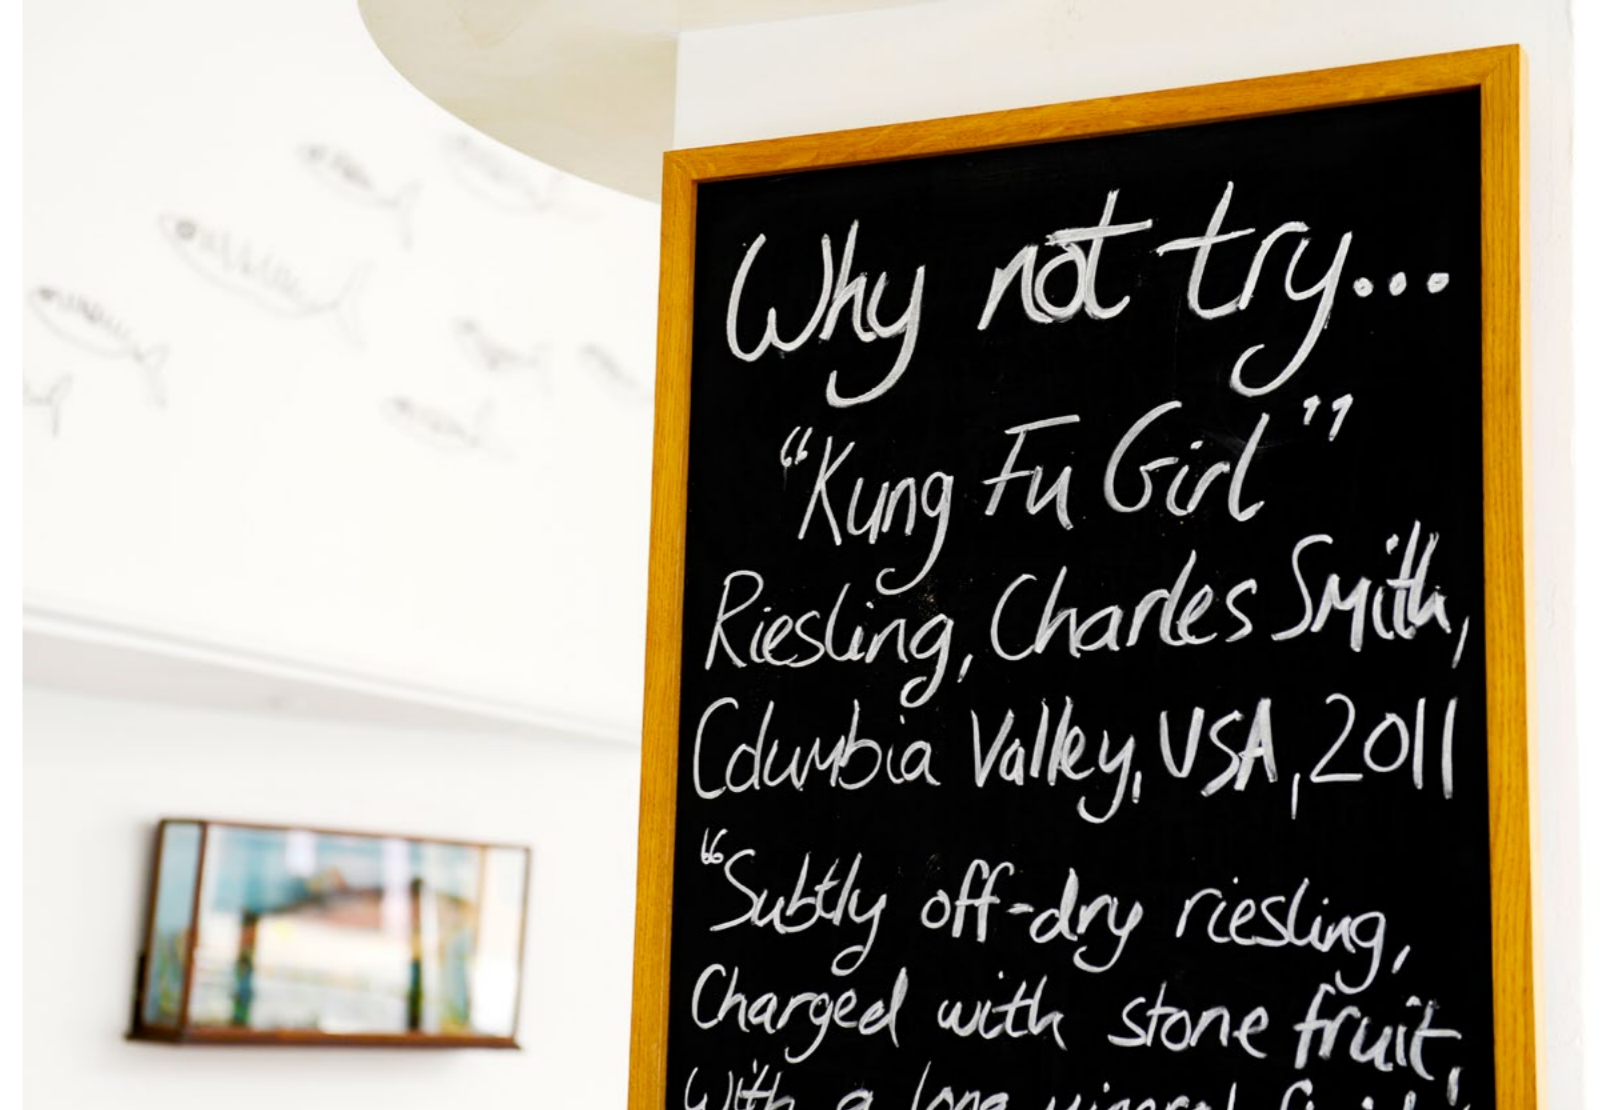 Why not try...
“Kung Fu Girl”
Riesling, Charles Smith,
Columbia Valley, USA, 2011
“Subtly off-dry riesling,
Charged with stone fruit,
With a long mineral